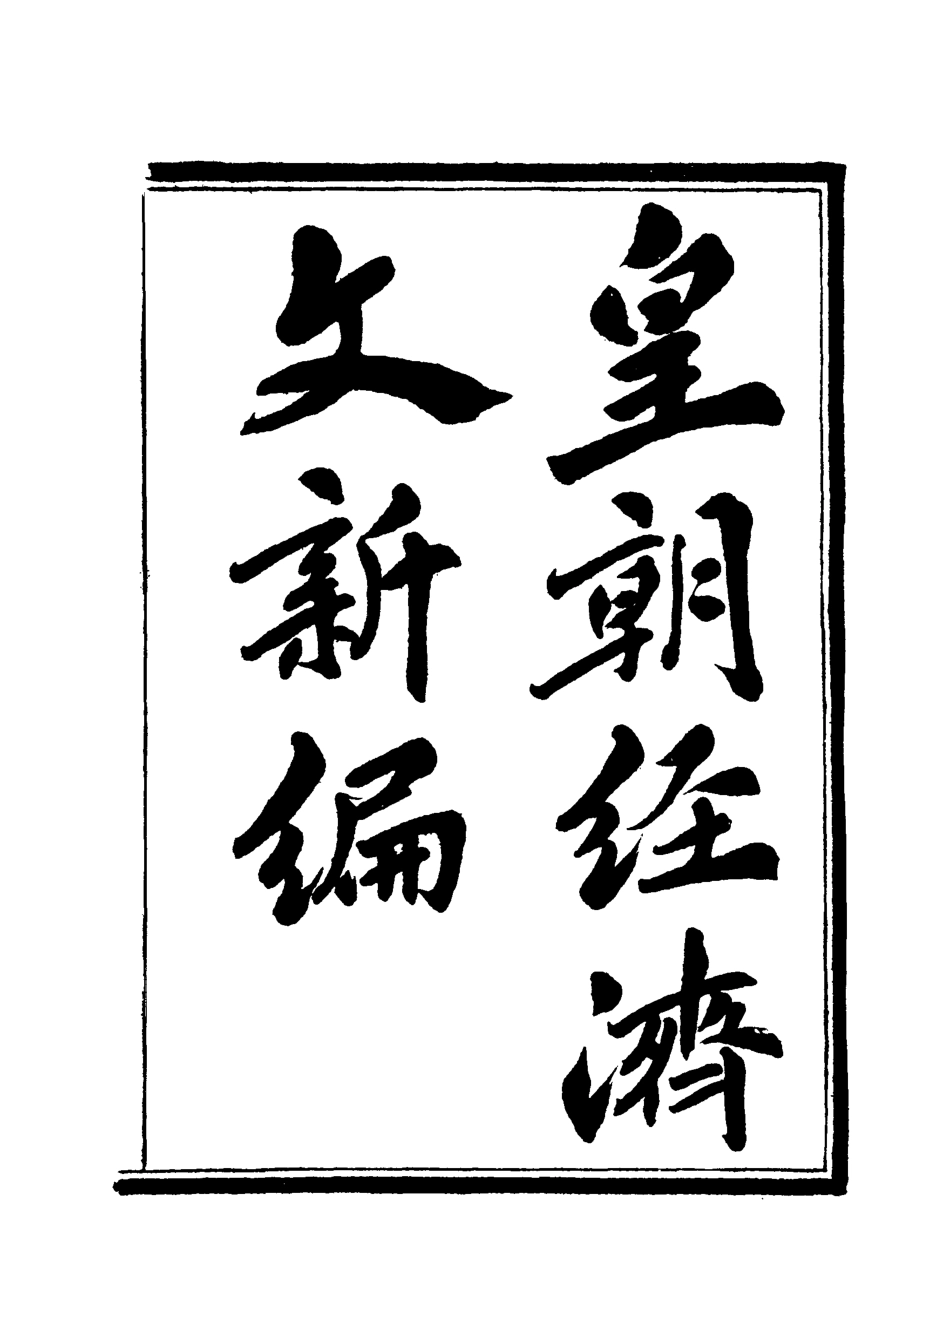 皇朝经濟
文新編